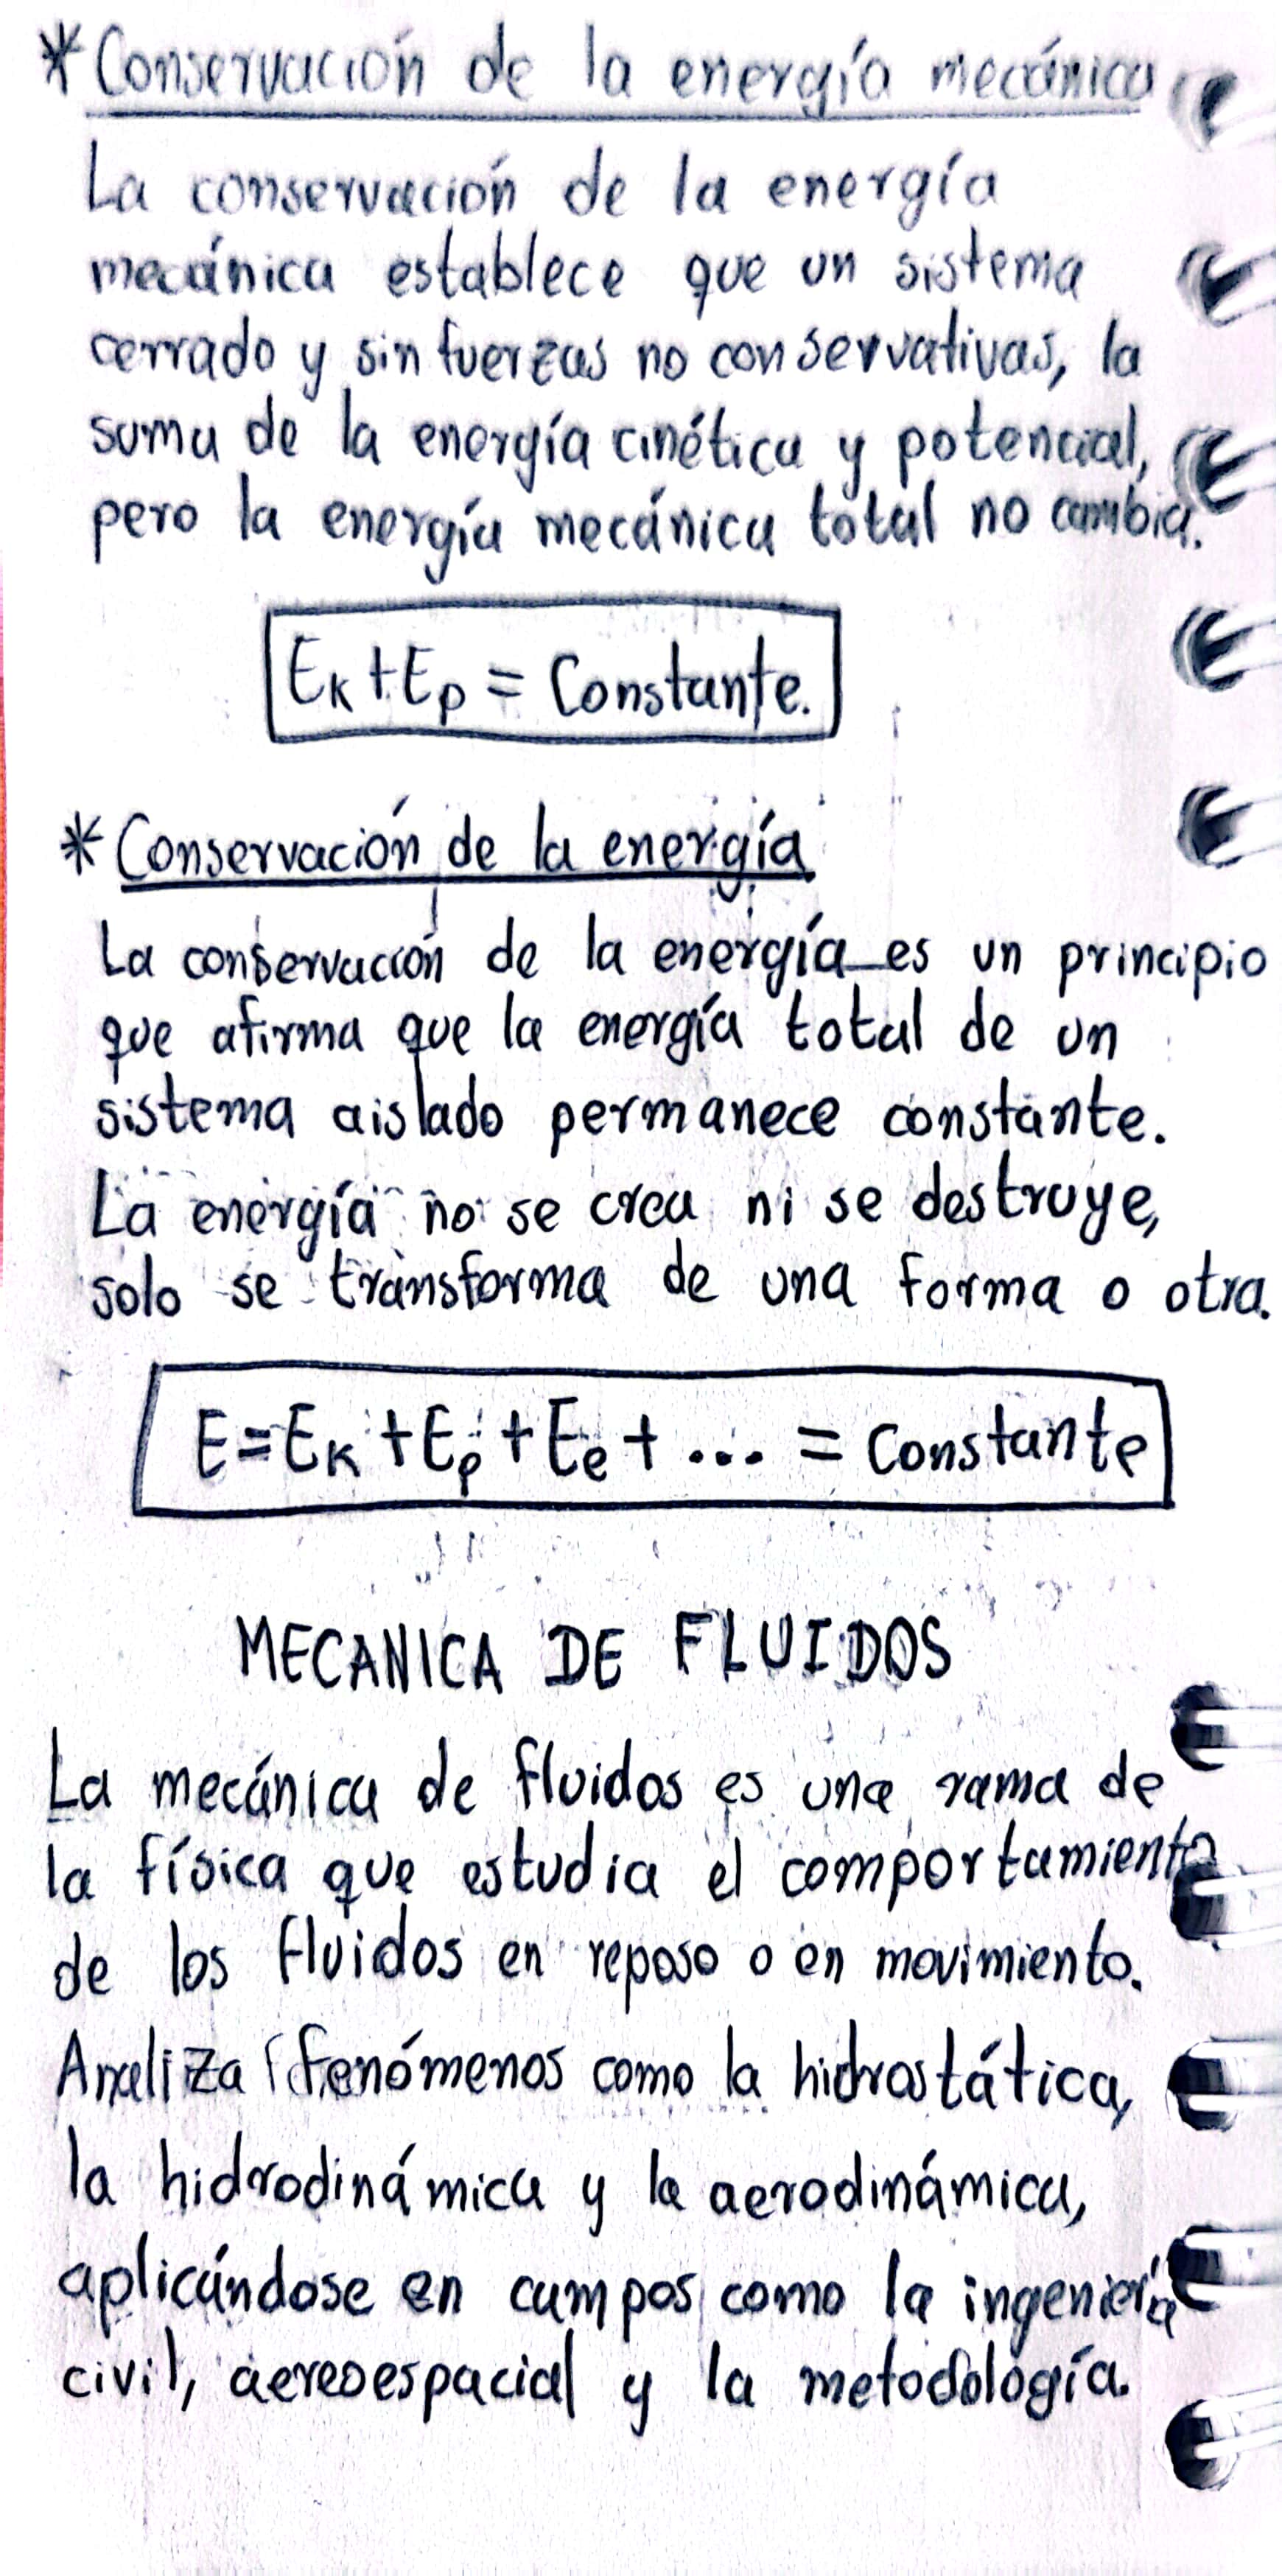 * Conservación de la energía mecánica
La conservación de la energía
mecánica establece que un sistema
cerrado y sin fuerzas no conservativas, la
suma de la energía cinética y potencial,
pero la energía mecánica total no cambia.
Eₖ + Eₚ = Constante.
* Conservación de la energía
La conservación de la energía es un principio
que afirma que la energía total de un
sistema aislado permanece constante.
La energía no se crea ni se destruye,
solo se transforma de una forma o otra.
E = Eₖ + Eₚ + Eₑ + ... = Constante
MECANICA DE FLUIDOS
La mecánica de fluidos es una rama de
la física que estudia el comportamiento
de los fluidos en reposo o en movimiento.
Analiza fenómenos como la hidrostática,
la hidrodinámica y la aerodinámica,
aplicándose en campos como la ingeniería
civil, aereoespacial y la metodología.